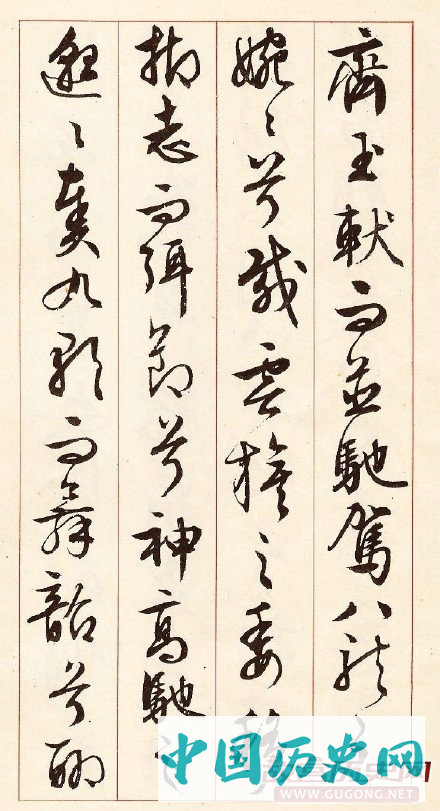 齊玉軑而並馳駕八龍
婉〻兮載雲旗之委
抑志而弭節兮神高馳
邈〻奏九歌而舞韶兮聊
中国历史网
WWW.GUGONG.NET